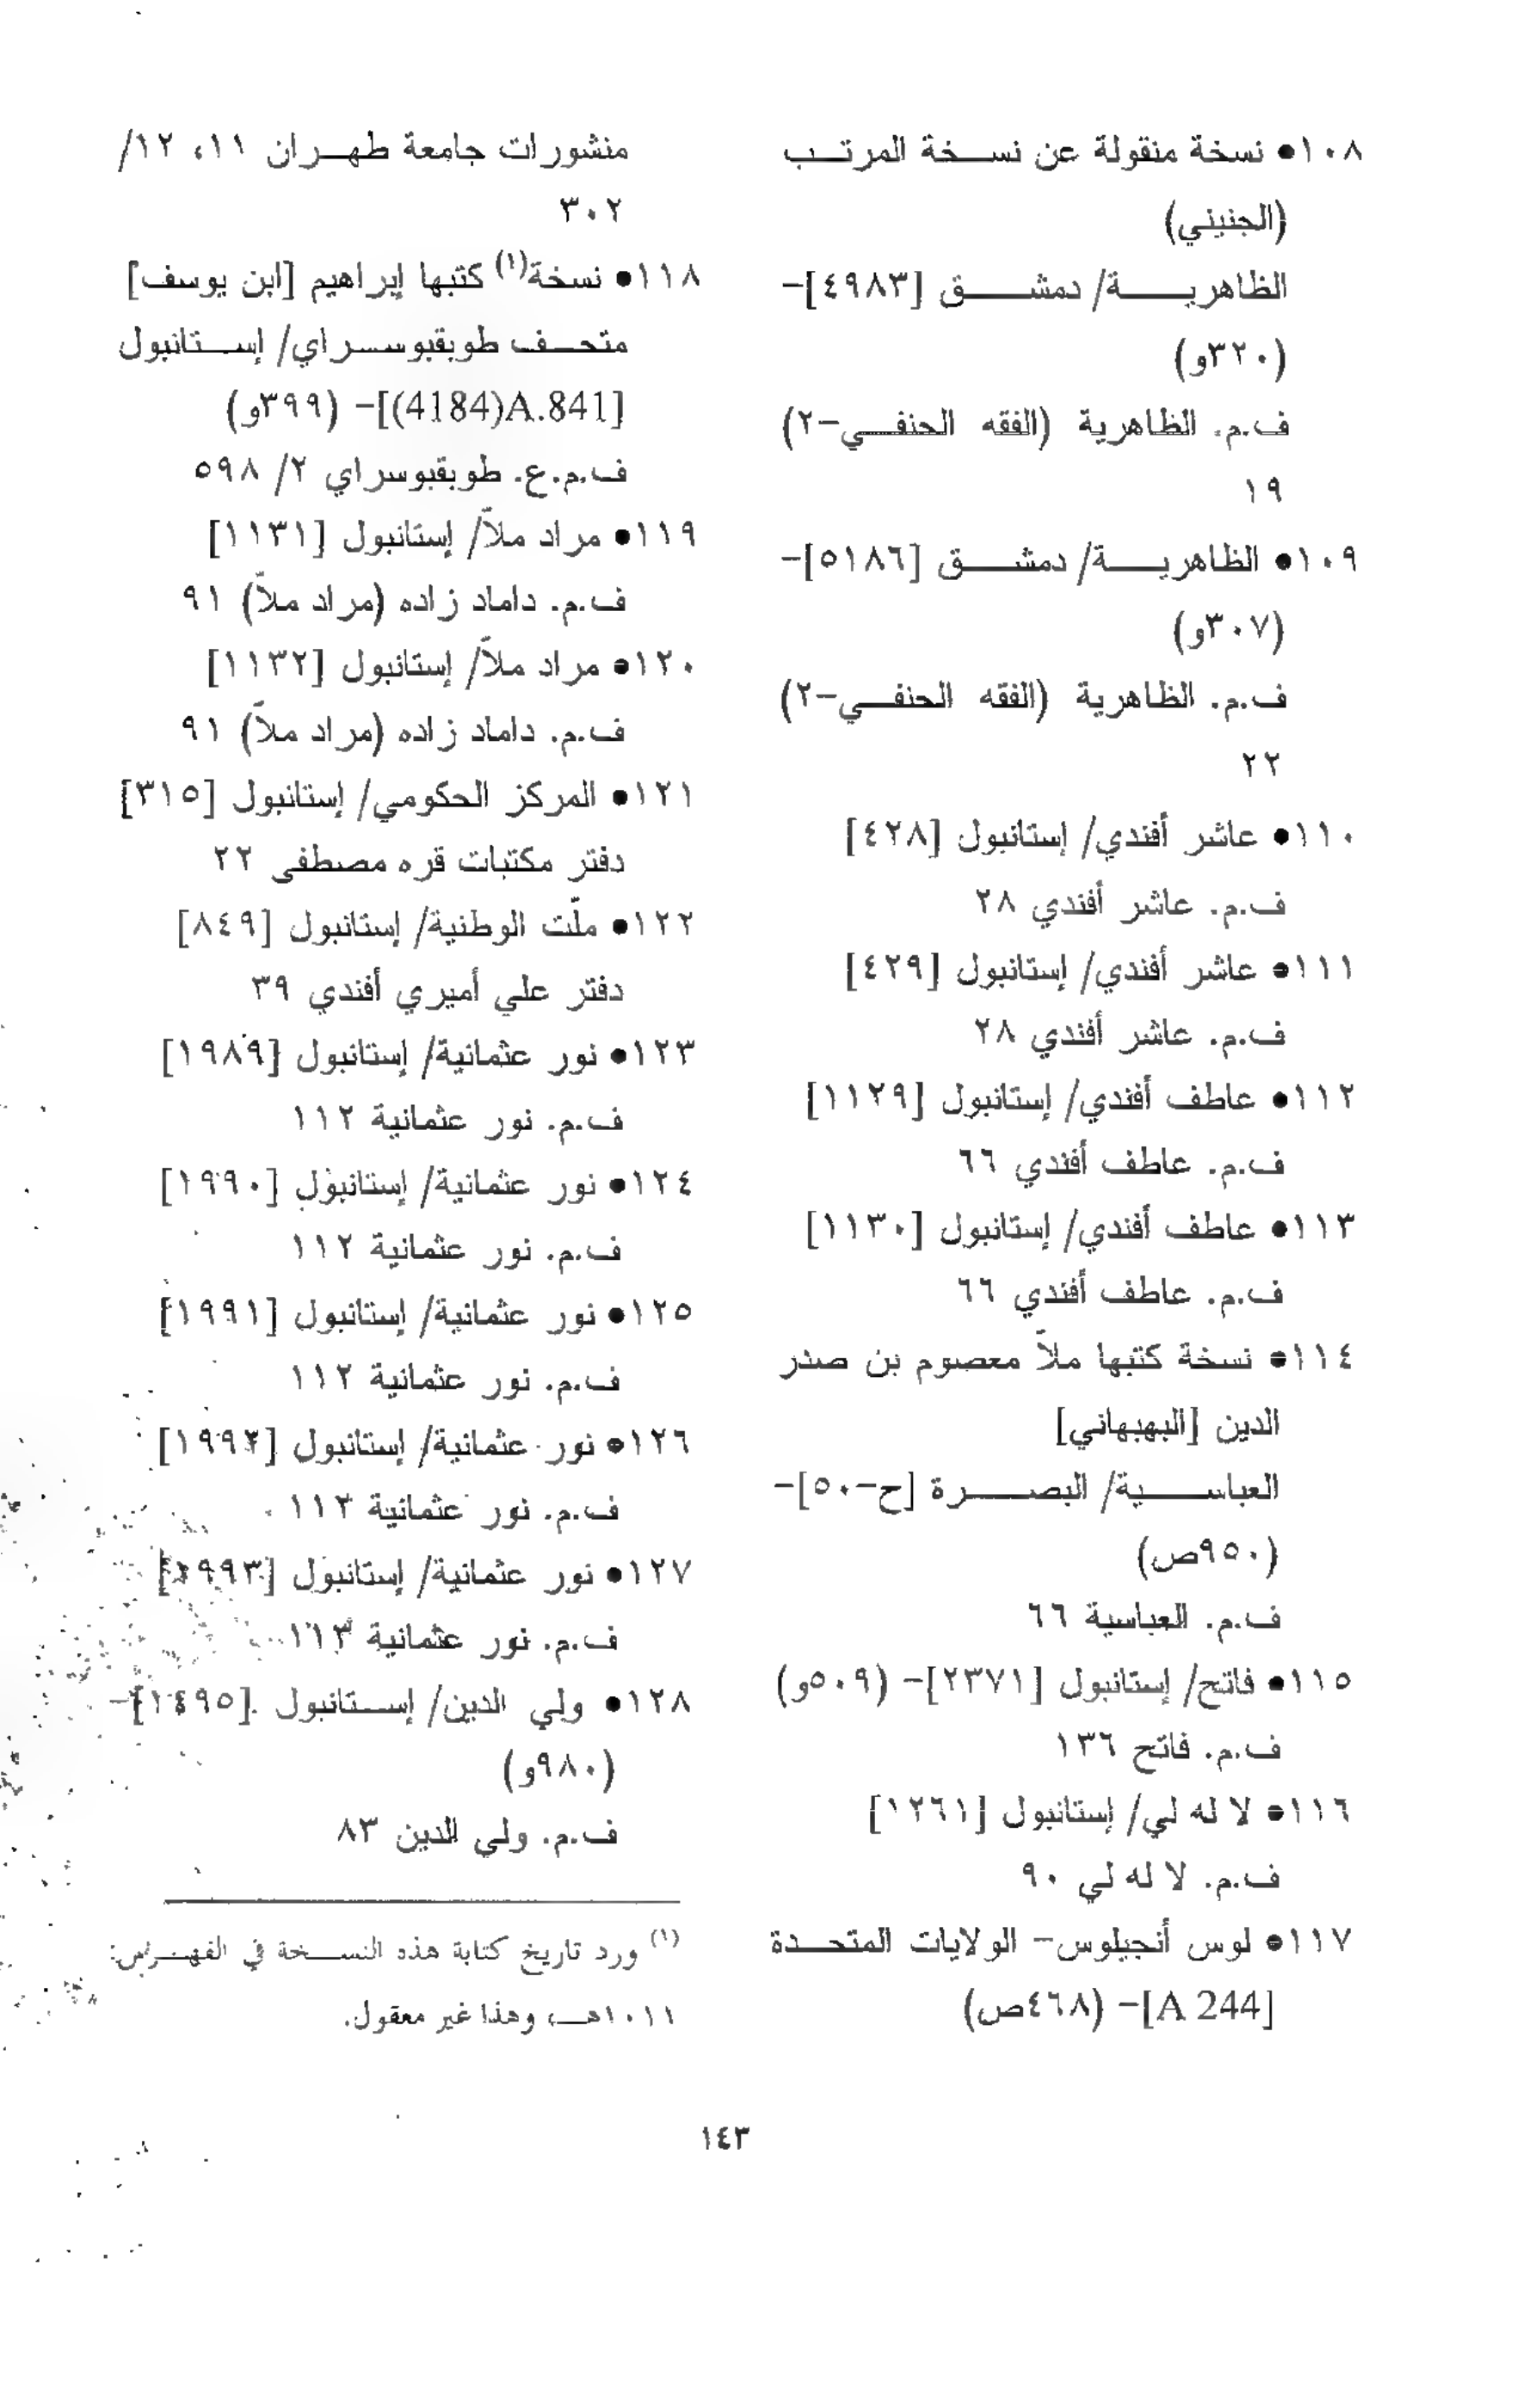 ١٠٨● نسخة منقولة عن نسخة المرتب
(الجنيني)
الظاهرية/ دمشق [٤٩٨٣]-
(٣٢٠و)
ف.م. الظاهرية (الفقه الحنفي-٢)
١٩
١٠٩● الظاهرية/ دمشق [٥١٨٦]-
(٣٠٧و)
ف.م. الظاهرية (الفقه الحنفي-٢)
٢٢
١١٠● عاشر أفندي/ إستانبول [٤٢٨]
ف.م. عاشر أفندي ٢٨
١١١● عاشر أفندي/ إستانبول [٤٢٩]
ف.م. عاشر أفندي ٢٨
١١٢● عاطف أفندي/ إستانبول [١١٢٩]
ف.م. عاطف أفندي ٦٦
١١٣● عاطف أفندي/ إستانبول [١١٣٠]
ف.م. عاطف أفندي ٦٦
١١٤● نسخة كتبها ملاّ معصوم بن صدر
الدين [البهبهاني]
العباسية/ البصرة [ح-٥٠]-
(٩٥٠ص)
ف.م. العباسية ٦٦
١١٥● فاتح/ إستانبول [٢٣٧١]- (٥٠٩و)
ف.م. فاتح ١٣٦
١١٦● لا له لي/ إستانبول [١٢٦١]
ف.م. لا له لي ٩٠
١١٧● لوس أنجيلوس- الولايات المتحدة
[A 244]- (٤٦٨ص)
منشورات جامعة طهران ١١، ١٢/
٣٠٢
١١٨● نسخة(١) كتبها إبراهيم [ابن يوسف]
متحف طوبقبوسراي/ إستانبول
[4184)A.841)]- (٣٩٩و)
ف.م.ع. طوبقبوسراي ٢/ ٥٩٨
١١٩● مراد ملاّ/ إستانبول [١١٣١]
ف.م. داماد زاده (مراد ملاّ) ٩١
١٢٠● مراد ملاّ/ إستانبول [١١٣٢]
ف.م. داماد زاده (مراد ملاّ) ٩١
١٢١● المركز الحكومي/ إستانبول [٣١٥]
دفتر مكتبات قره مصطفى ٢٢
١٢٢● ملّت الوطنية/ إستانبول [٨٤٩]
دفتر علي أميري أفندي ٣٩
١٢٣● نور عثمانية/ إستانبول [١٩٨٩]
ف.م. نور عثمانية ١١٢
١٢٤● نور عثمانية/ إستانبول [١٩٩٠]
ف.م. نور عثمانية ١١٢
١٢٥● نور عثمانية/ إستانبول [١٩٩١]
ف.م. نور عثمانية ١١٢
١٢٦● نور عثمانية/ إستانبول [١٩٩٢]
ف.م. نور عثمانية ١١٣
١٢٧● نور عثمانية/ إستانبول [١٩٩٣]
ف.م. نور عثمانية ١١٣
١٢٨● ولي الدين/ إستانبول [١٤٩٥]-
(٩٨٠و)
ف.م. ولي الدين ٨٣
(١) ورد تاريخ كتابة هذه النسخة في الفهرس:
١٠١١هـ، وهذا غير معقول.
١٤٣